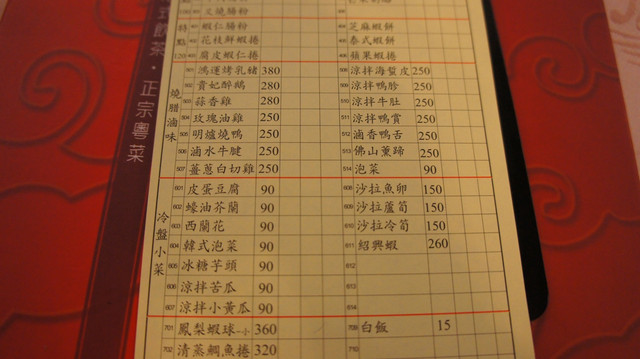 飲茶·正宗粵菜
特點 120
叉燒腸粉
蝦仁腸粉
402 花枝鮮蝦捲
腐皮蝦仁捲
芝麻蝦餅
泰式蝦餅
蘋果蝦捲
燒腊滷味
501 鴻運烤乳豬 380
502 貴妃醉鵝 280
503 蒜香雞 280
504 玫瑰油雞 250
505 明爐燒鴨 250
506 滷水牛腱 250
507 薑蔥白切雞 250
508 涼拌海蜇皮 250
509 涼拌鴨胗 250
510 涼拌牛肚 250
511 涼拌鴨賞 250
512 滷香鴨舌 250
513 佛山薰蹄 250
514 泡菜 90
冷盤小菜
601 皮蛋豆腐 90
602 蠔油芥蘭 90
603 西蘭花 90
604 韓式泡菜 90
605 冰糖芋頭 90
606 涼拌苦瓜 90
607 涼拌小黃瓜 90
608 沙拉魚卵 150
609 沙拉蘆筍 150
610 沙拉冷筍 150
611 紹興蝦 260
612
613
614
701 鳳梨蝦球-小 360
702 清蒸鯛魚捲 320
709 白飯 15
710